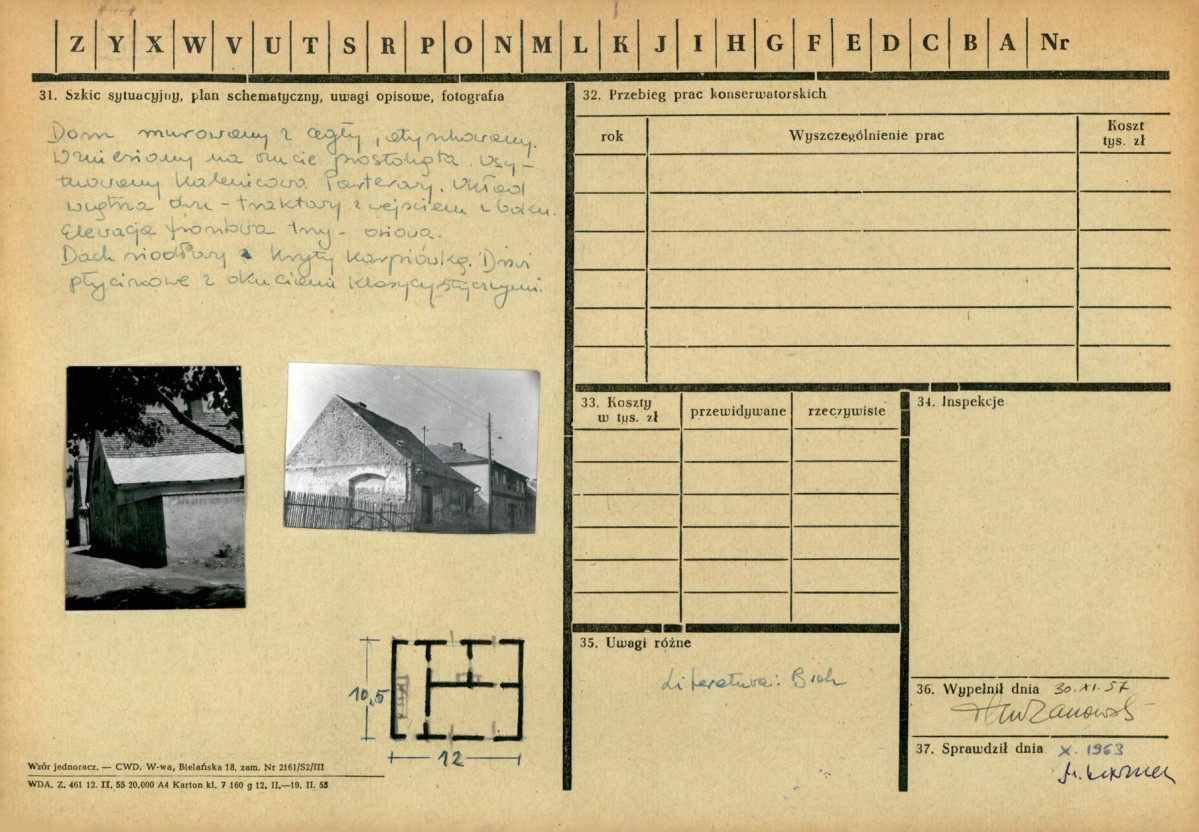 Z Y X W V U T S R P O N M L K J I H G F E D C B A Nr
31. Szkic sytuacyjny, plan schematyczny, uwagi opisowe, fotografia
Dom murowany z cegły, otynkowany.
Wzniesiony na rzucie prostokąta. Usy-
tuowany kalenicowo. Parterowy. Układ
wnętrza dwu-traktowy z wejściem z boku.
Elewacja frontowa trzy-osiowa.
Dach siodłowy kryty karpiówką. Drzwi
płycinowe z okuciami klasycystycznymi.
10,5
12
Wzór jednoracz. — CWD, W-wa, Bielańska 18, zam. Nr 2161/S2/III
WDA, Z. 461 12. II. 55 20.000 A4 Karton kl. 7 160 g 12. II.—19. II. 55
32. Przebieg prac konserwatorskich
rok
Wyszczególnienie prac
Koszt
tys. zł
33. Koszty
w tys. zł
przewidywane
rzeczywiste
34. Inspekcje
35. Uwagi różne
Literatura: Brak
36. Wypełnił dnia 30.XI.57
37. Sprawdził dnia X. 1963